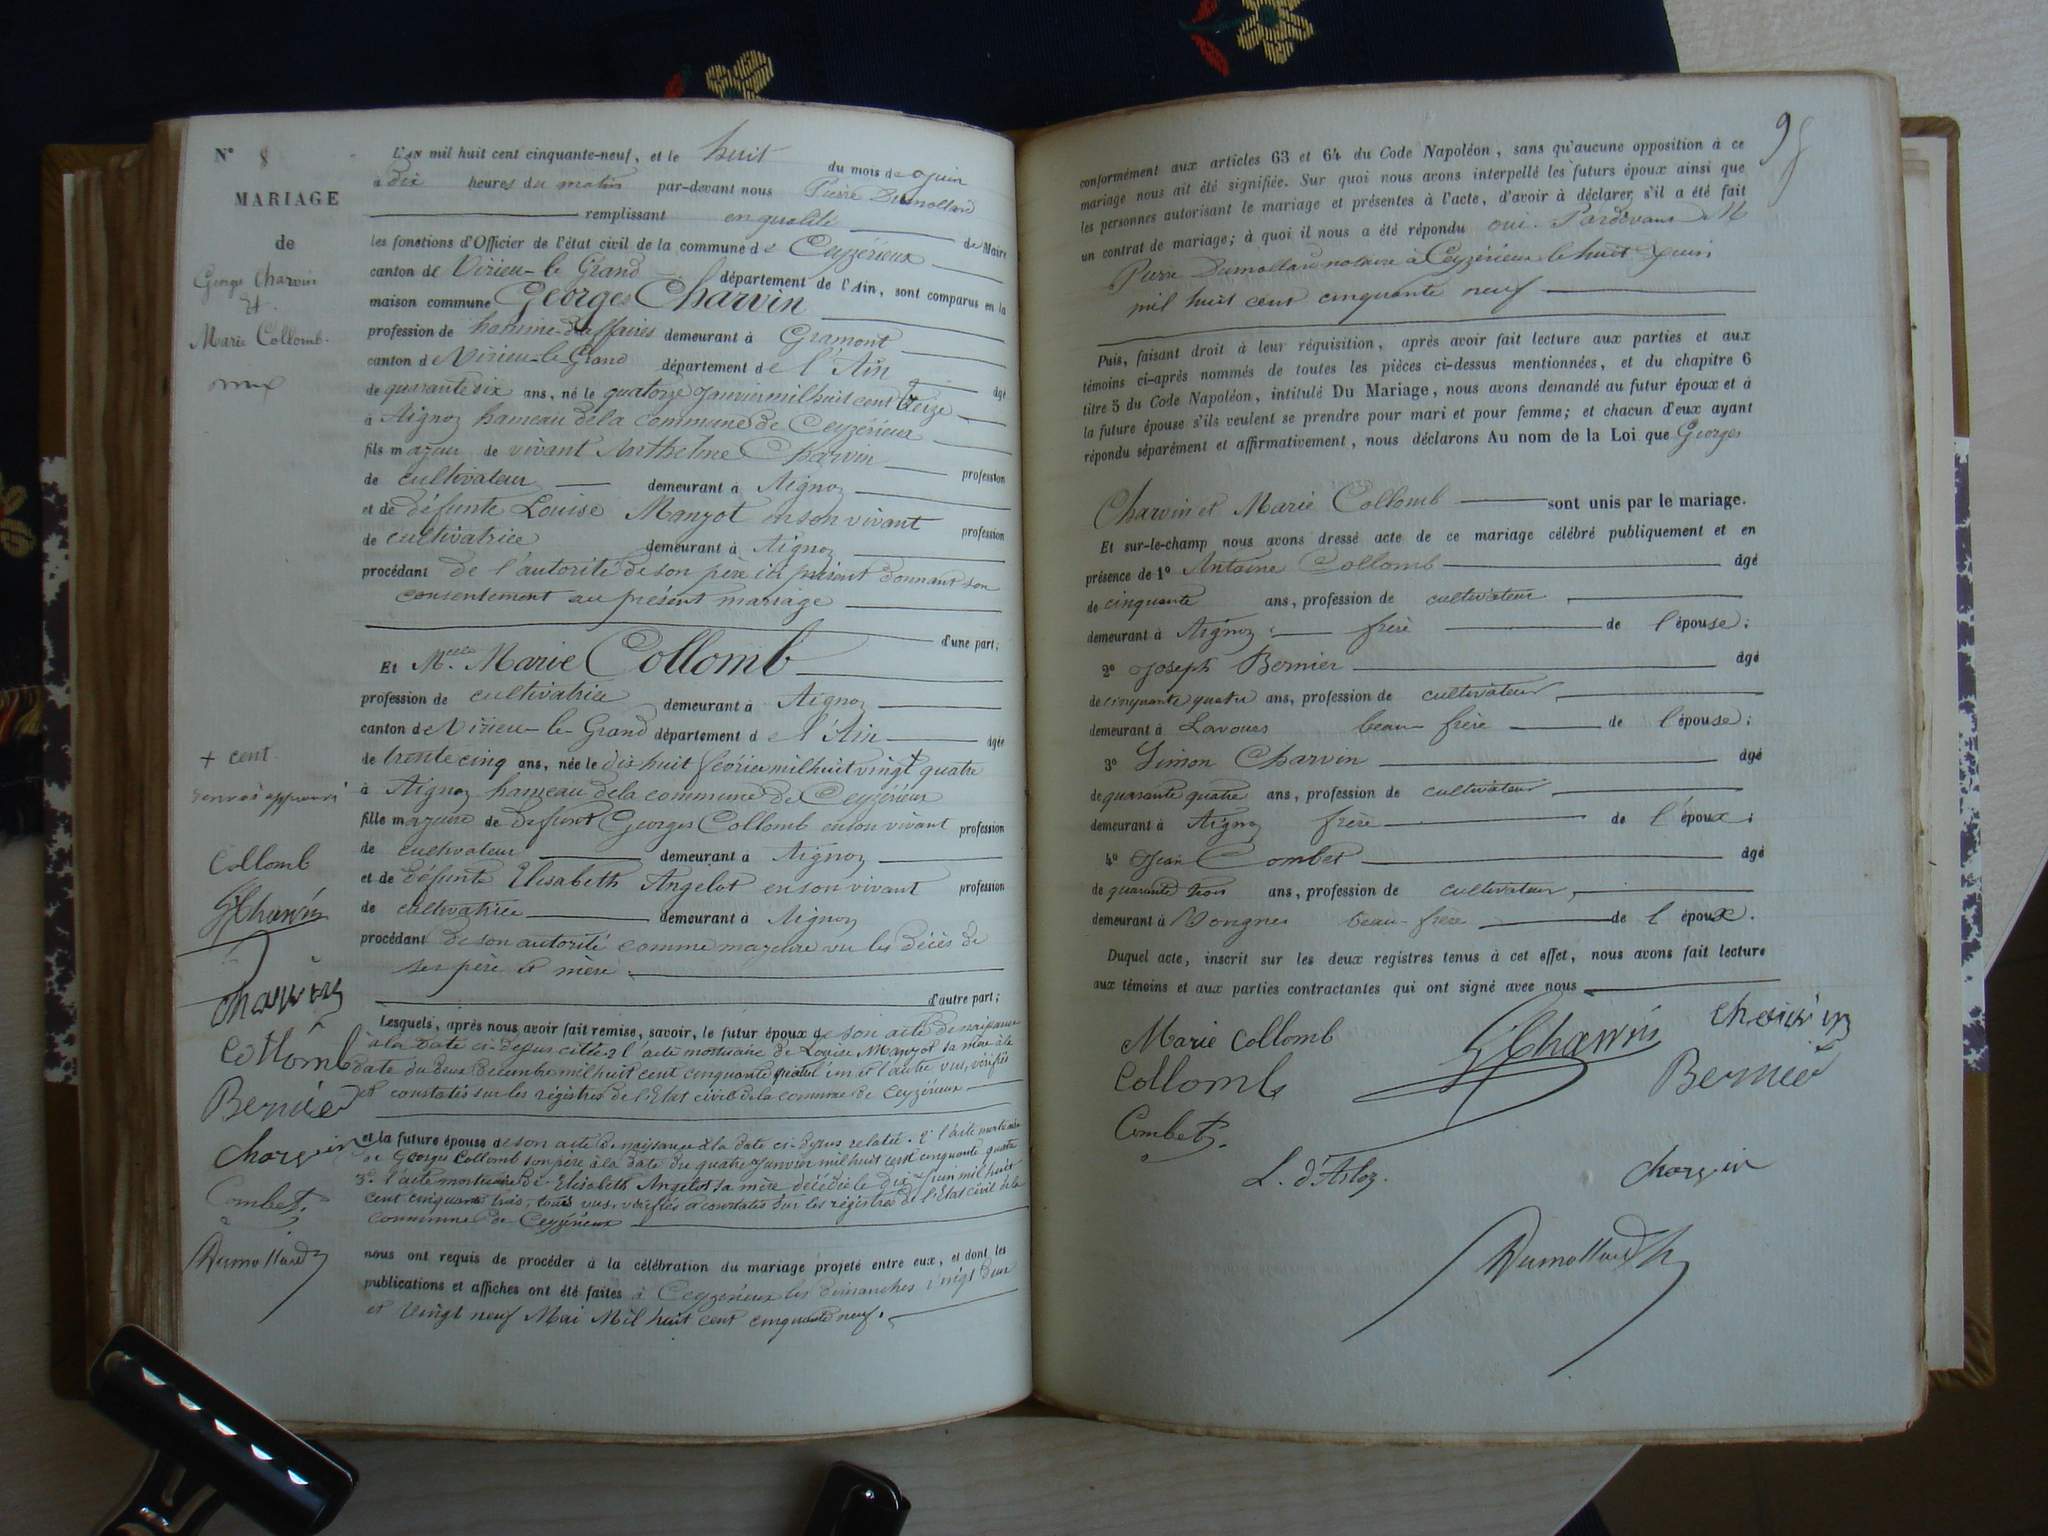 N° 8
MARIAGE
de
Georges Charvin
et
Marie Collomb.
L'AN mil huit cent cinquante-neuf, et le huit du mois de Juin
à dix heures du matin par-devant nous Pierre Dumollard
remplissant en qualité de Maire
les fonctions d'Officier de l'état civil de la commune de Ceyzérieux
canton de Virieu-le-Grand département de l'Ain, sont comparus en la
maison commune Georges Charvin
profession de homme d'affaires demeurant à Gramont
canton de Virieu-le-Grand département de l'Ain âgé
de quarante six ans, né le quatorze Janvier mil huit cent treize
à Aignoz hameau de la commune de Ceyzérieux
fils majeur de vivant Anthelme Charvin profession
de cultivateur demeurant à Aignoz
et de défunte Louise Manjot en son vivant profession
de cultivatrice demeurant à Aignoz
procédant de l'autorité de son père ici présent donnant son
consentement au présent mariage
d'une part;
Et Melle Marie Collomb
profession de cultivatrice demeurant à Aignoz
canton de Virieu-le-Grand département de l'Ain âgée
de trente cinq ans, née le dix huit février mil huit + vingt quatre
à Aignoz hameau de la commune de Ceyzérieux
fille majeure de défunt Georges Collomb en son vivant profession
de cultivateur demeurant à Aignoz
et de défunte Elisabeth Angelot en son vivant profession
de cultivatrice demeurant à Aignoz
procédant de son autorité comme majeure vu les décès de
ses père et mère
d'autre part;
Lesquels, après nous avoir fait remise, savoir, le futur époux de son acte de naissance
à la date ci-dessus citée 2° l'acte mortuaire de Louise Manjot sa mère à la
date du deux Décembre mil huit cent cinquante quatre l'un et l'autre vus, vérifiés
et constatés sur les régistres de l'Etat civil de la commune de Ceyzérieux
et la future épouse de son acte de naissance à la date ci-dessus relatée. 2° l'acte mortuaire
de Georges Collomb son père à la date du quatre Janvier mil huit cent cinquante quatre
3° l'acte mortuaire de Elisabeth Angelot sa mère décédée le dix Juin mil huit
cent cinquante trois, tous vus, vérifiés et constatés sur les régistres de l'Etat civil de la
commune de Ceyzérieux
nous ont requis de procéder à la célébration du mariage projeté entre eux, et dont les
publications et affiches ont été faites à Ceyzérieux les dimanches vingt deux
et vingt neuf Mai Mil huit cent cinquante neuf.
+ cent
renvoi approuvé
Collomb
GCharvin
Charvin
Collomb
Bernier
Charvin
Combet
Dumollard
conformément aux articles 63 et 64 du Code Napoléon, sans qu'aucune opposition à ce
mariage nous ait été signifiée. Sur quoi nous avons interpellé les futurs époux ainsi que
les personnes autorisant le mariage et présentes à l'acte, d'avoir à déclarer s'il a été fait
un contrat de mariage; à quoi il nous a été répondu oui. Pardevant Me
Pierre Dumollard notaire à Ceyzérieux le huit Juin
mil huit cent cinquante neuf
Puis, faisant droit à leur réquisition, après avoir fait lecture aux parties et aux
témoins ci-après nommés de toutes les pièces ci-dessus mentionnées, et du chapitre 6
titre 5 du Code Napoléon, intitulé Du Mariage, nous avons demandé au futur époux et à
la future épouse s'ils veulent se prendre pour mari et pour femme; et chacun d'eux ayant
répondu séparément et affirmativement, nous déclarons Au nom de la Loi que Georges
Charvin et Marie Collomb sont unis par le mariage.
Et sur-le-champ nous avons dressé acte de ce mariage célébré publiquement et en
présence de 1° Antoine Collomb âgé
de cinquante ans, profession de cultivateur
demeurant à Aignoz frère de l'épouse;
2° Joseph Bernier âgé
de cinquante quatre ans, profession de cultivateur
demeurant à Lavours beau-frère de l'épouse;
3° Simon Charvin âgé
de quarante quatre ans, profession de cultivateur
demeurant à Aignoz frère de l'époux;
4° Jean Combet âgé
de quarante trois ans, profession de cultivateur
demeurant à Vongnes beau-frère de l'époux.
Duquel acte, inscrit sur les deux registres tenus à cet effet, nous avons fait lecture
aux témoins et aux parties contractantes qui ont signé avec nous
Marie Collomb GCharvin Charvin
Collomb Bernier
Combet.
L. d'Arloz. Charvin
Dumollard